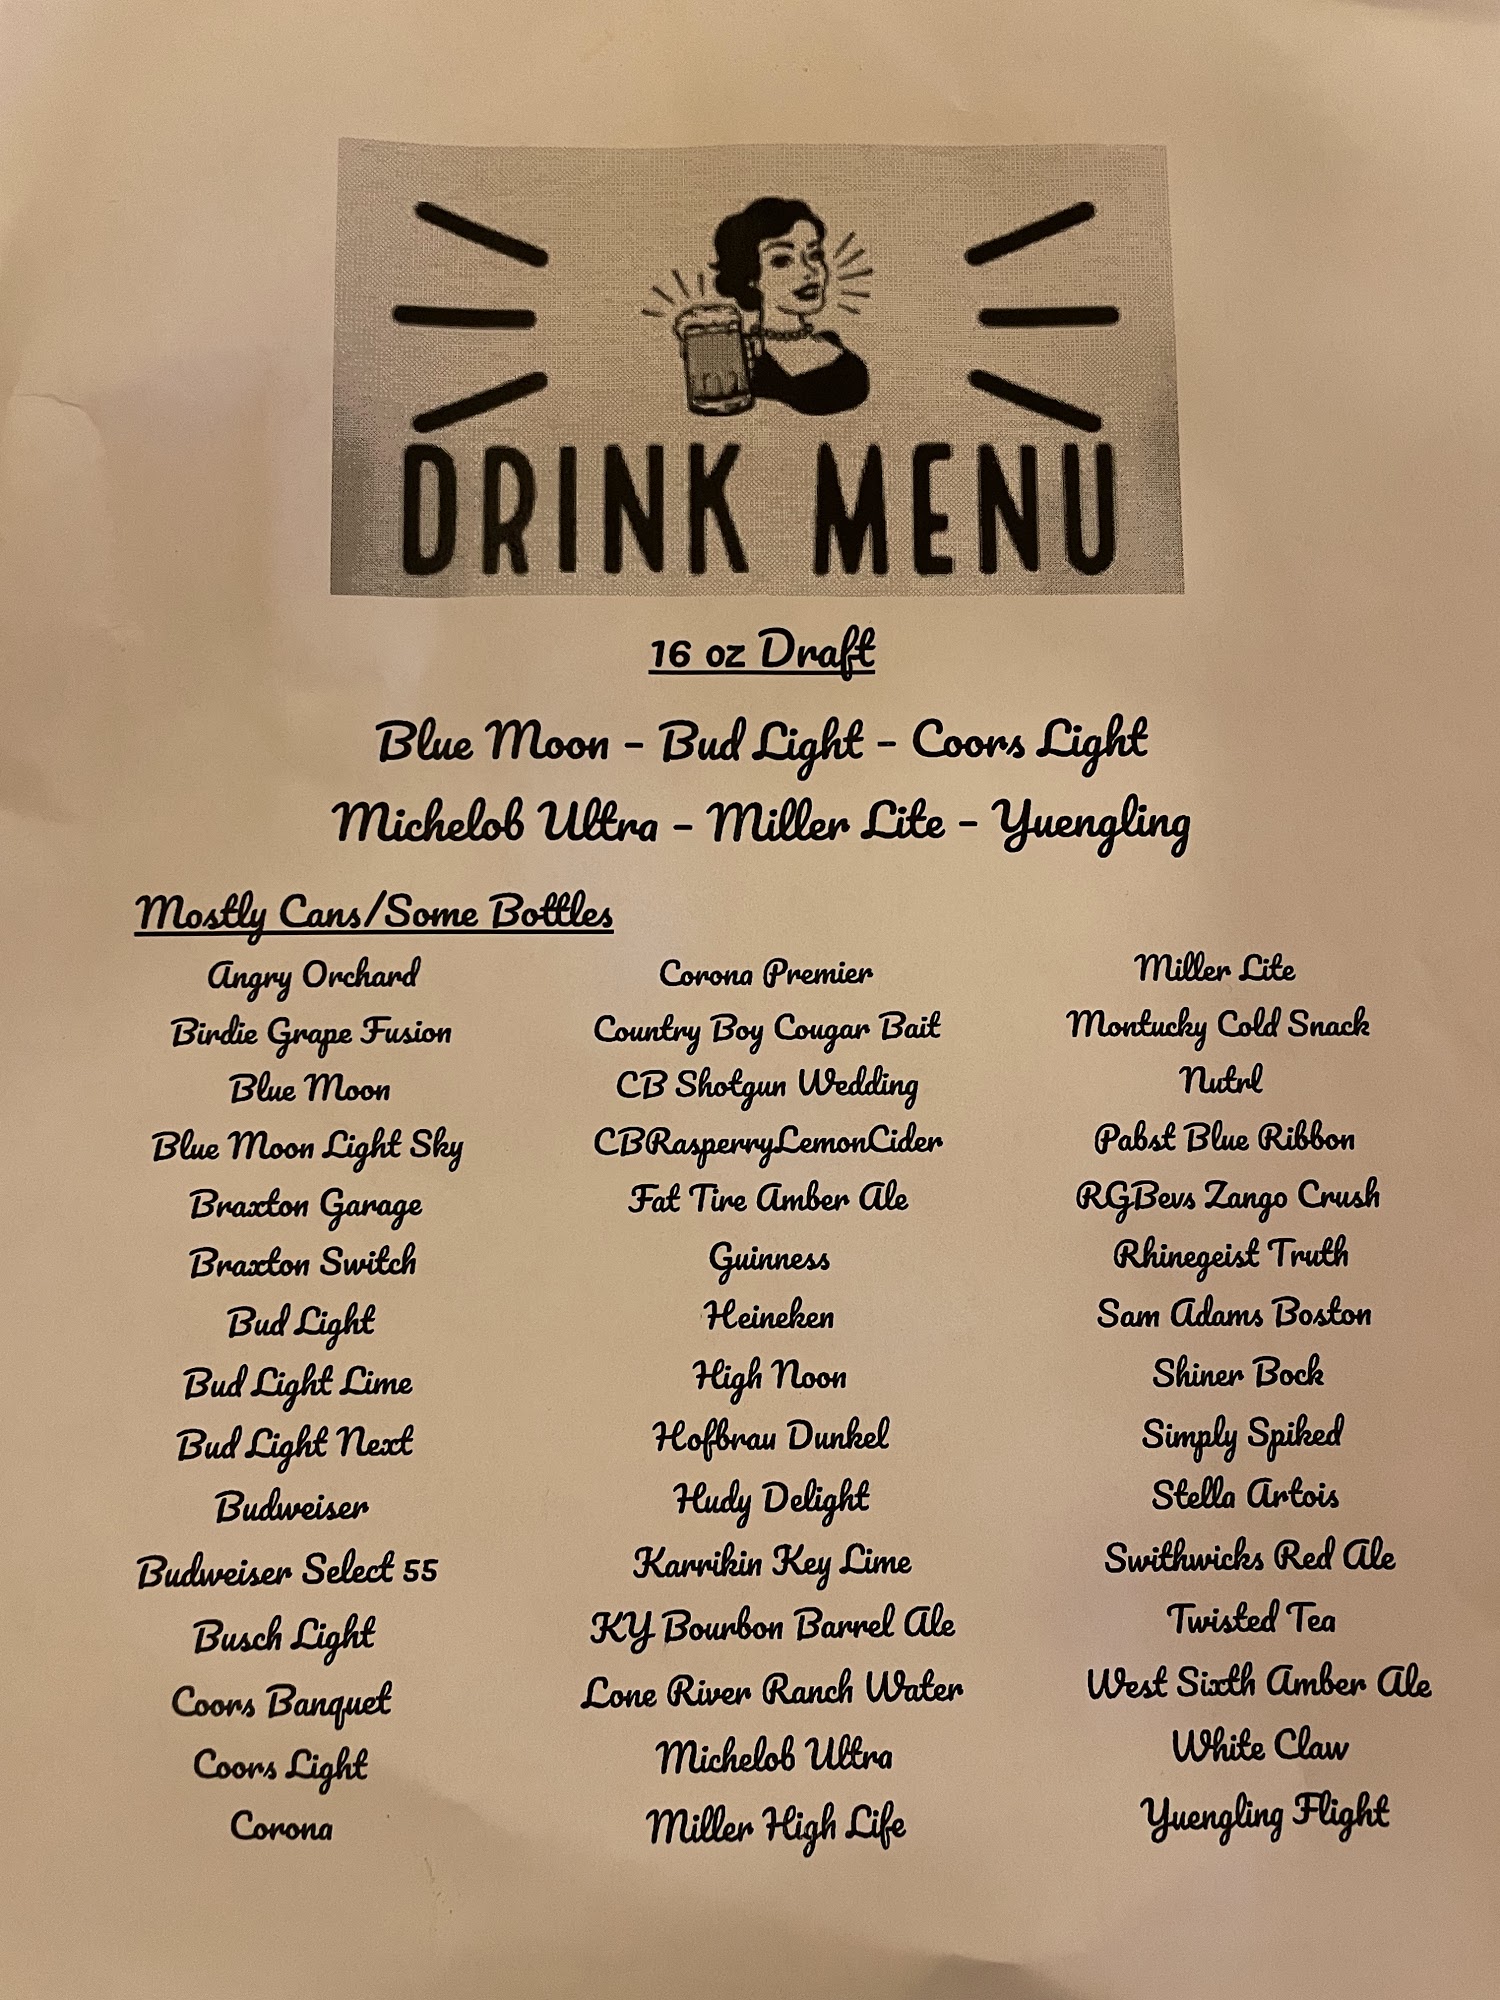 DRINK MENU
16 oz Draft
Blue Moon - Bud Light - Coors Light
Michelob Ultra - Miller Lite - Yuengling
Mostly Cans/Some Bottles
Angry Orchard
Birdie Grape Fusion
Blue Moon
Blue Moon Light Sky
Braxton Garage
Braxton Switch
Bud Light
Bud Light Lime
Bud Light Next
Budweiser
Budweiser Select 55
Busch Light
Coors Banquet
Coors Light
Corona
Corona Premier
Country Boy Cougar Bait
CB Shotgun Wedding
CBRasperryLemonCider
Fat Tire Amber Ale
Guinness
Heineken
High Noon
Hofbrau Dunkel
Hudy Delight
Karrikin Key Lime
KY Bourbon Barrel Ale
Lone River Ranch Water
Michelob Ultra
Miller High Life
Miller Lite
Montucky Cold Snack
Nutrl
Pabst Blue Ribbon
RGBevs Zango Crush
Rhinegeist Truth
Sam Adams Boston
Shiner Bock
Simply Spiked
Stella Artois
Swithwicks Red Ale
Twisted Tea
West Sixth Amber Ale
White Claw
Yuengling Flight